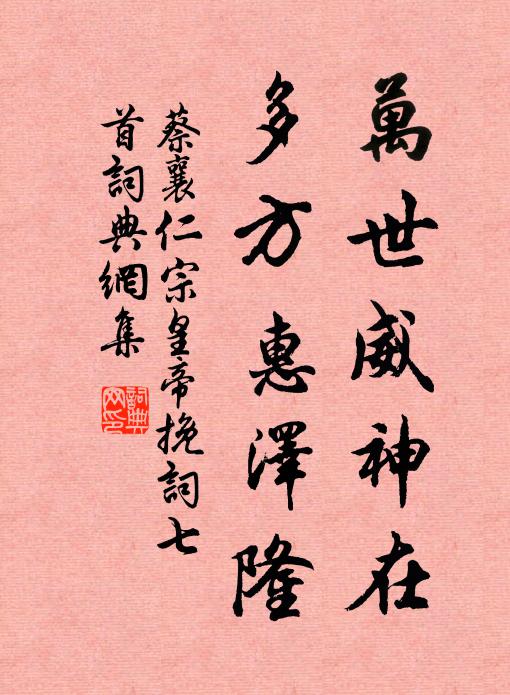 萬世威神在
多方惠澤隆
蔡襄仁宗皇帝挽詞七
首詞典網集
詞典
网印